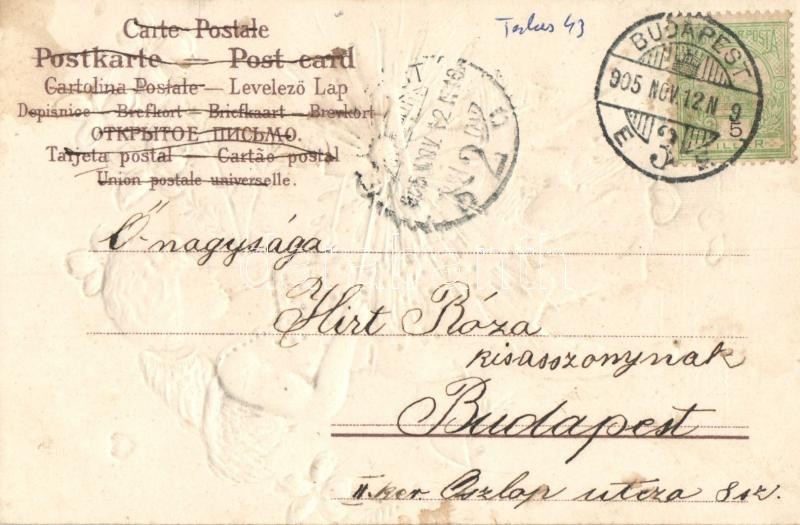 Carte Postale
Postkarte — Post card
Cartolina Postale — Levelező Lap
Dopisnice — Brefkort — Briefkaart — Brevkort
ОТКРЫТОЕ ПИСЬМО.
Tarjeta postal — Cartão postal
Union postale universelle.
BUDAPEST
905 NOV. 12 N 9
3
5
905 NOV. 12
Ő nagysága
Hirt Róza
kisasszonynak
Budapest
II. ker Oszlop utcza 8 sz.